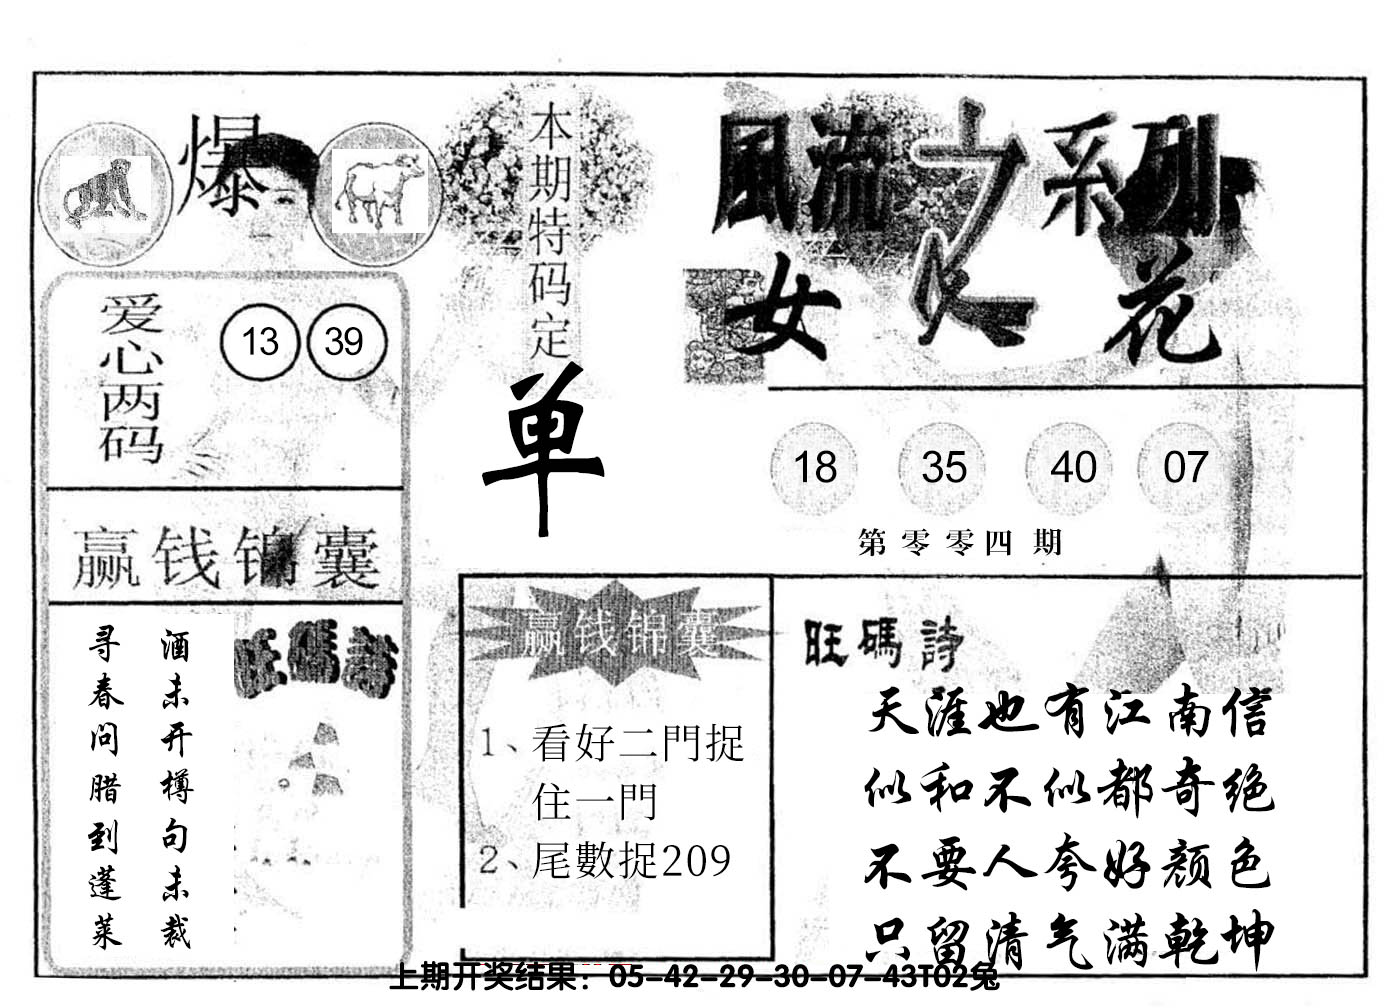 爆
爱心两码
13 39
赢钱锦囊
酒未开樽句未裁
寻春问腊到蓬莱
旺碼詩
本期特码定
单
風流之系列
女人花
18 35 40 07
第零零四期
赢钱锦囊
1、看好二門捉
住一門
2、尾數捉209
旺碼詩
天涯也有江南信
似和不似都奇绝
不要人夸好颜色
只留清气满乾坤
上期开奖结果：05-42-29-30-07-43T02兔